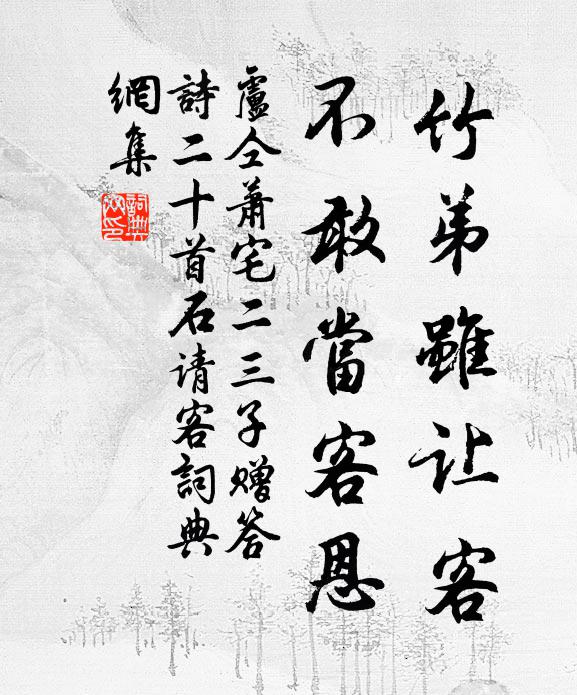 竹弟雖让客
不敢當客恩
盧仝萧宅二三子赠答
詩二十首石请客詞典
網集
詞典網印